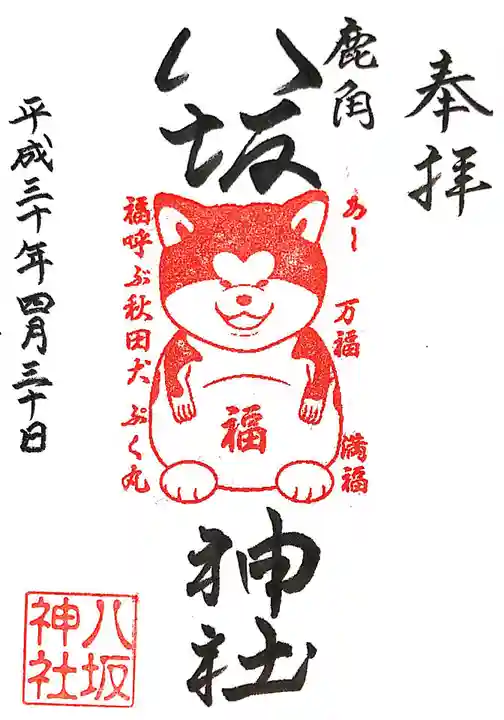 奉拝
鹿角
八坂
神社
あ〜 万福 満福
福
福呼ぶ秋田犬 ぷく丸
平成三十年四月三十日
八坂
神社